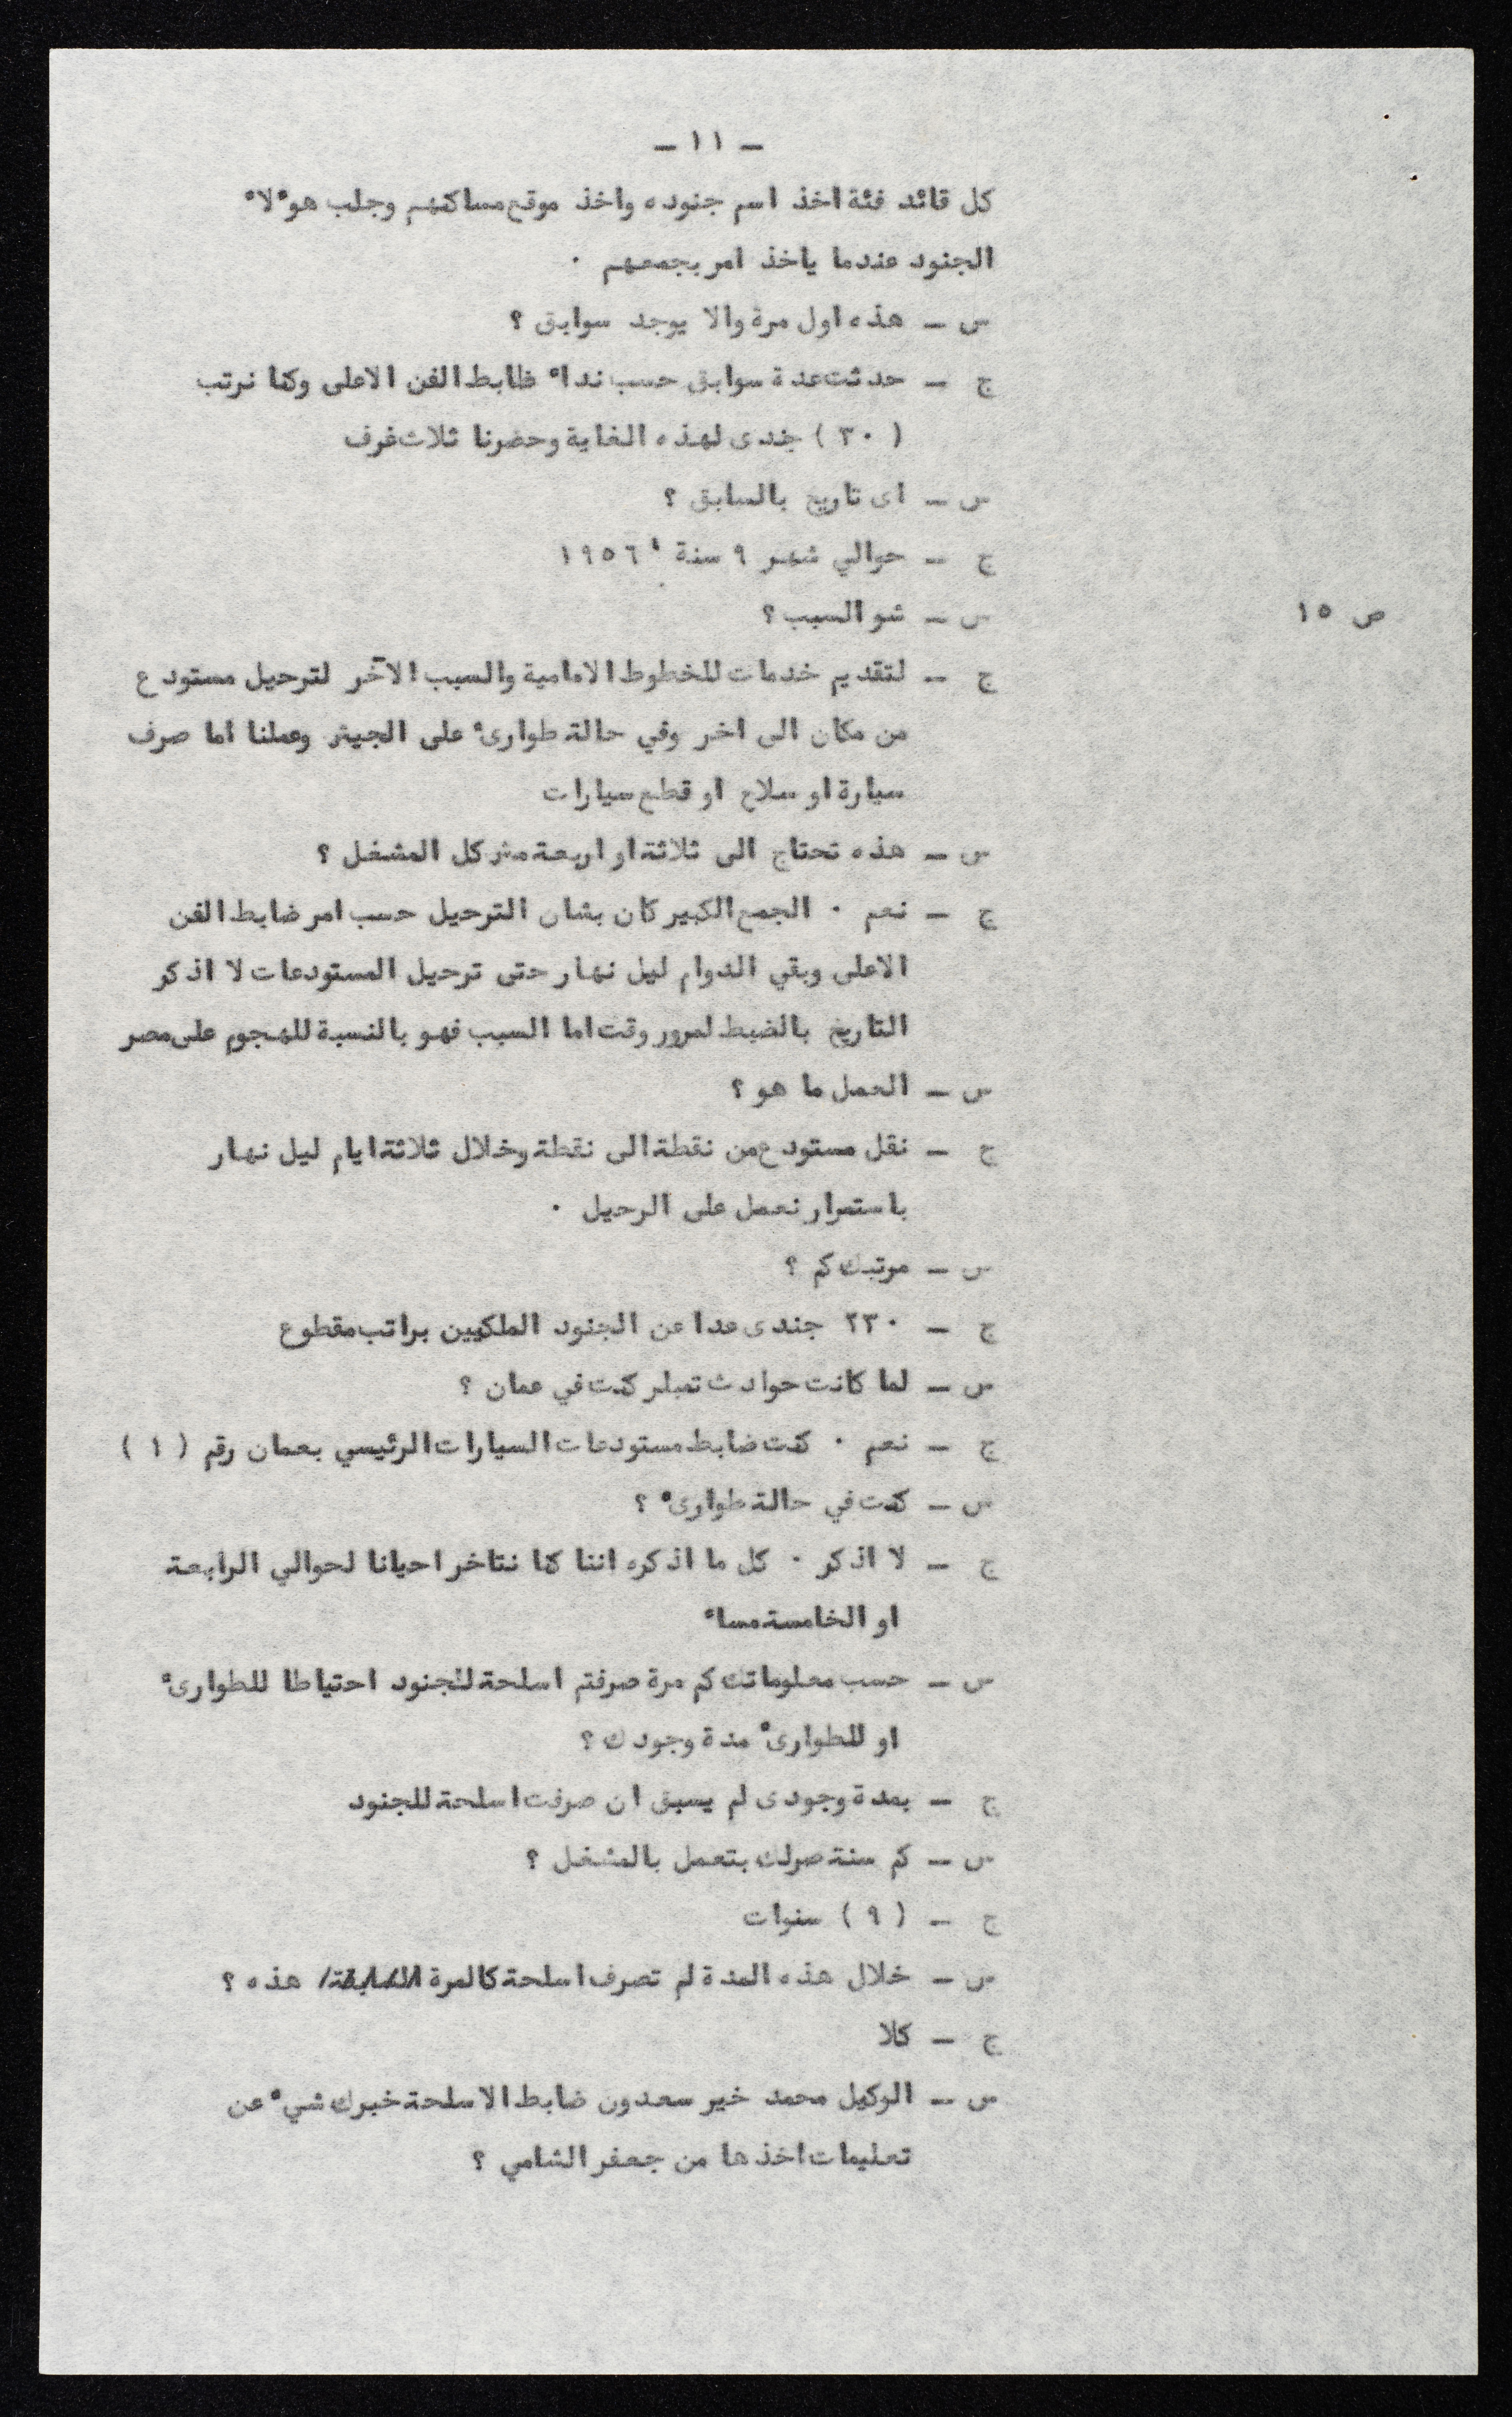 ـ ١١ ـ
كل قائد فئة اخذ اسم جنوده واخذ موقع مساكنهم وجلب هوءلاء
الجنود عندما ياخذ امر بجمعهم ٠
س ـ هذه اول مرة والا يوجد سوابق ؟
ج ـ حدثت عدة سوابق حسب نداء ظابط الفن الاعلى وكنا نرتب
( ٣٠ ) جندى لهذه الغاية وحضرنا ثلاث غرف
س ـ اى تاريخ بالسابق ؟
ج ـ حوالي شهر ٩ سنة ١٩٥٦
ص ١٥
س ـ شو السبب ؟
ج ـ لتقديم خدمات للخطوط الامامية والسبب الآخر لترحيل مستودع
من مكان الى اخر وفي حالة طوارىء على الجيش وعملنا اما صرف
سيارة او سلاح او قطع سيارات
س ـ هذه تحتاج الى ثلاثة او اربعة مش كل المشغل ؟
ج ـ نعم ٠ الجمع الكبير كان بشان الترحيل حسب امر ضابط الفن
الاعلى وبقي الدوام ليل نهار حتى ترحيل المستودعات لا اذكر
التاريخ بالضبط لمرور وقت اما السبب فهو بالنسبة للهجوم على مصر
س ـ العمل ما هو ؟
ج ـ نقل مستودع من نقطة الى نقطة وخلال ثلاثة ايام ليل نهار
باستمرار نعمل على الرحيل ٠
س ـ مرتبك كم ؟
ج ـ ٢٣٠ جندى عدا عن الجنود الملكيين براتب مقطوع
س ـ لما كانت حوادث تمبلر كنت في عمان ؟
ج ـ نعم ٠ كنت ضابط مستودعات السيارات الرئيسي بعمان رقم ( ١ )
س ـ كنت في حالة طوارىء ؟
ج ـ لا اذكر ٠ كل ما اذكره اننا كنا نتاخر احيانا لحوالي الرابعة
او الخامسة مساء
س ـ حسب معلوماتك كم مرة صرفتم اسلحة للجنود احتياطا للطوارىء
او للطوارىء مدة وجودك ؟
ج ـ بمدة وجودى لم يسبق ان صرفت اسلحة للجنود
س ـ كم سنة صرلك بتعمل بالمشغل ؟
ج ـ ( ٩ ) سنوات
س ـ خلال هذه المدة لم تصرف اسلحة كالمرة السابقة هذه ؟
ج ـ كلا
س ـ الوكيل محمد خير سعدون ضابط الاسلحة خبرك شيء عن
تعليمات اخذها من جعفر الشامي ؟